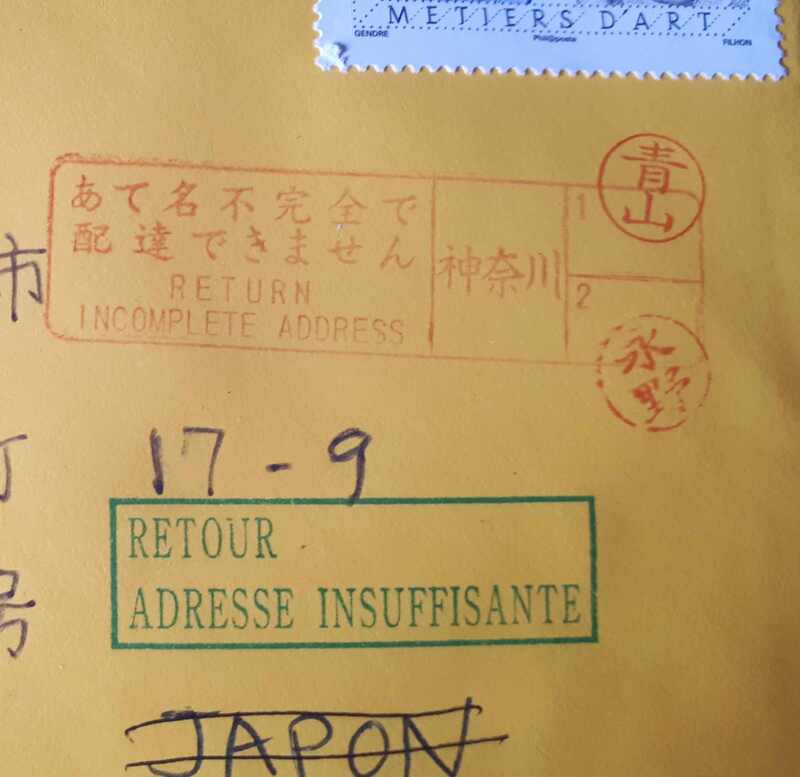 METIERS D'ART
GENDRE
Phil@poste
FILHON
青山
あて名不完全で
配達できません
RETURN
INCOMPLETE ADDRESS
神奈川
1
2
永野
市
17-9
RETOUR
ADRESSE INSUFFISANTE
号
JAPON